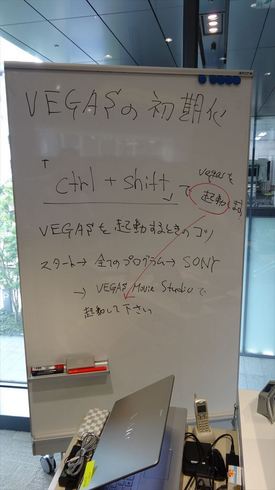 VEGASの初期化
「ctrl + shift」で vegasを起動します
VEGASを起動するときのコツ
スタート→全てのプログラム→SONY
→ VEGAS Movie Studioで
起動して下さい